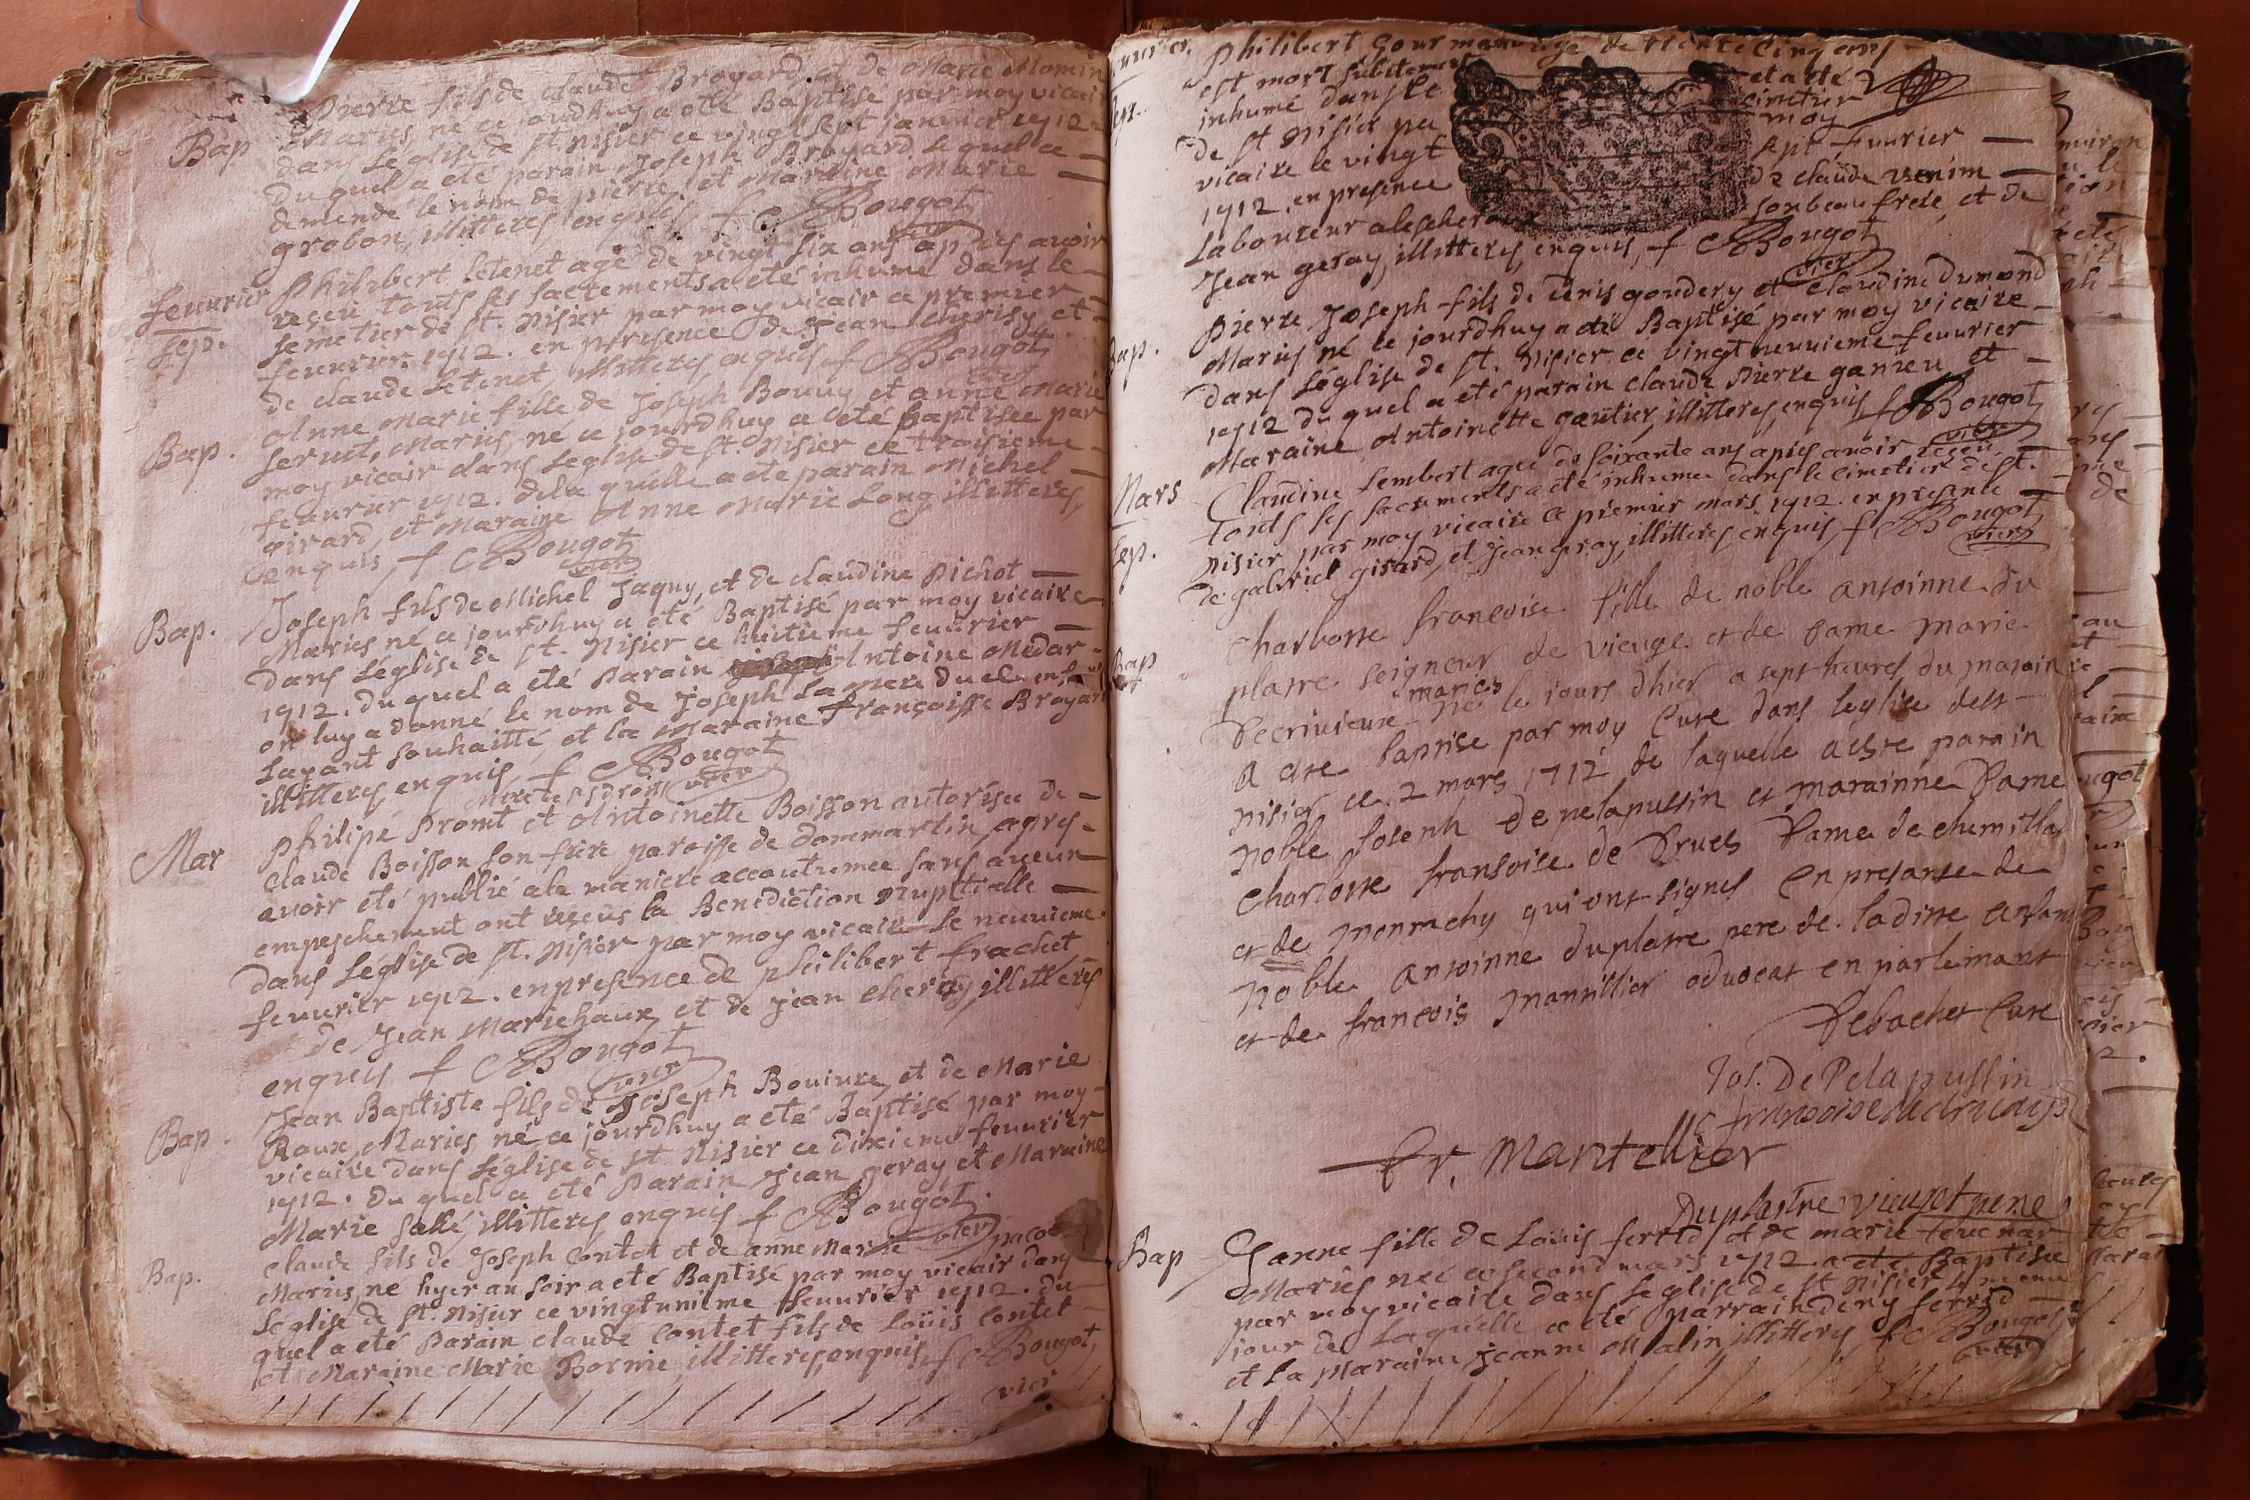 Pierre fils de claude Broyard, et de Marie Momin
Bap
Mariés, né ce jourdhuy a eté Baptisé par moy vicair
dans Leglise de st. Nisier ce vingt sept janvier 1712
duquel a eté parain Joseph Broyard lequel a
demendé le nom de pierre, et Maraine Marie
grobon, illitteres enquis f C Bougot
vier
fevurier
Philibert letenet agé de vingt six ans apres avoir
sep.
reçeu touts ses sacrements a eté inhumé dans le
semetier de st. Nisier par moy vicair ce premier
fevurier 1712. en presence de Jean cherisy, et
de claude Letenet, illitteres enquis f C Bougot
vier
Bap.
Anne Marie fille de Joseph Bouuy et anne Marie
seruet, Mariés, né ce jourdhuy a eté Baptisée par
moy vicair dans Leglise de st. Nisier ce troisieme
fevurier 1712. dela quelle a eté parain Michel
girard, et Maraine Anne Marie Long illitteres,
enquis, f C Bougot
vier
Bap.
Joseph fils de Michel Jaquy, et de claudine Pichot
Mariés né ce jourdhuy a eté Baptisé par moy vicaire
dans Léglise de st. Nisier ce huitieme feuurier
1712. du quel a eté Parain Antoine Medar
on luy a donné le nom de Joseph La mere du enfant
Layant souhaitté, et la Maraine Françoisse Broyard
illitteres enquis, f C Bougot
vier
Mar
Philipé Promt et Antoinette Boisson autorisée de
claude Boisson son frere paroisse de dommartin, apres
avoir eté publié ala maniere accoutumee sans aucun
empeschement ont reçeus la Benediction nuptialle
dans Léglise de st. Nisier par moy vicaire le neuuieme
feuurier 1712. en presence de philibert frachet
de Jean Mariehaux, et de Jean cherisy, illitteres
enquis f C Bougot
vier
Bap.
Jean Baptiste fils de Joseph Bouiure, et de Marie
Raux, Mariés né ce jourdhuy a eté Baptisé par moy
vicaire dans Léglise de st Nisier ce dixieme feuurier
1712. du quel a eté Parain Jean geray et Maraine
Marie sallé, illitteres enquis f C Bougot.
vier
Bap.
claude fils de Joseph Contet et de anne Marie pacou
Mariés, né hyer au soir a eté Baptisé par moy vicair dans
Leglise de st. Nisier ce vingtunieme feuurier 1712. du
quel a eté Parain claude Contet fils de Loüis Contet
et Maraine Marie Bornie illitteres, enquis, f C Bougot
vier
Philibert gourmand agé de trente cinq ans
est mort subitement et a eté
inhumé dans le cimetier
de st Nisier pa moy
vicaire le vingt sept feuurier
1712. en presence de claude venim
Laboureur son beau frere, et de
Jean geray, illitteres, enquis, f C Bougot
vier
Bap.
Pierre Joseph fils de denis goudery et Claudine dumond
Mariés né ce jourdhuy a eté Baptisé par moy vicaire
dans Léglise de st. Nisier ce vingt neuuieme feuurier
1712 du quel a eté parain claude Pierre ganieu et
Maraine Antoinette gautier, illitteres, enquis f C Bougot
vier
Mars
Claudine Lembert agée de soixante ans apres avoir reçeu
sep.
touts ses sacrements a eté inhumée dans le cimetier de st.
Nisier par moy vicaire ce premier mars 1712. en presente
de gabriel girard, et Jean geray, illitteres, enquis, f C Bougot
vier
Bap
charlotte francoise fille de noble antoinne du
platre seigneur de vieuge et de Dame marie
Decriuieure mariés née le jours dhier a sept heures du matin
a etre baptise par moy Cure dans leglise de st
nisier ce 2 mars 1712 de laquelle a estre parain
noble Joseph De pelapussin et marainne Dame
charlotte fransoise de Druel Dame de chemilla
et de monnachy qui ont signes En presanse de
noble antoinne duplatre pere de laditte enfant
et de francois mantillier aduocat en parlemant
Debachet Cure
Jos. De Pelapussin
fr. Mantellier
Duplastre vieuget pere
Bap
Janne fille de Loüis ferrid, et de marie teuenar
Mariés née ce second mars 1712. a eté Baptisée
par moy vicaire dans Leglise de st Nisier le meme
jour de Laquelle a eté parrain deny ferrid
et la Maraine Jeanne Malin illitteres, f C Bougot
vier